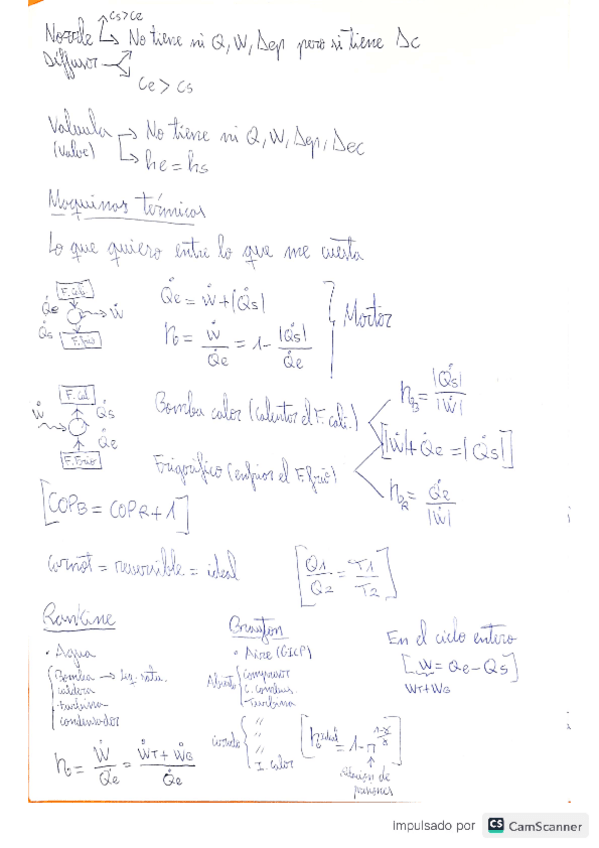 Cs>Ce
Nozzle → No tiene ni Q, W, Δep pero si tiene Δc
Diffusor
Ce > Cs
Valvula → No tiene ni Q, W, Δep, Δec
(Valve) → he = hs
Maquinas térmicas
Lo que quiero entre lo que me cuesta
F.Cal
Q̇e Ẇ
Q̇s
F.Frio
Q̇e = Ẇ + |Q̇s|
η = Ẇ/Q̇e = 1 - |Q̇s|/Q̇e
Motor
F.Cal
Ẇ Q̇s
Q̇e
F.Frio
Bomba calor (calentar el F. cali.)
Frigorífico (enfriar el F. frio)
ηB = |Q̇s|/|Ẇ|
[|Ẇ| + Q̇e = |Q̇s|]
ηR = Q̇e/|Ẇ|
[COPB = COPR + 1]
Carnot = reversible = ideal
[Q1/Q2 = T1/T2]
Rankine
• Agua
Bomba → Liq. satu.
caldera
turbina
condensador
η = Ẇ/Q̇e = (ẆT + ẆB)/Q̇e
Brayton
• Aire (GICP)
Abierto
compresor
C. combus.
turbina
cerrado
"
"
"
I. calor
= 1 -
relacion de
presiones
En el ciclo entero
[W = Qe - Qs]
WT + WB
Impulsado por CS CamScanner